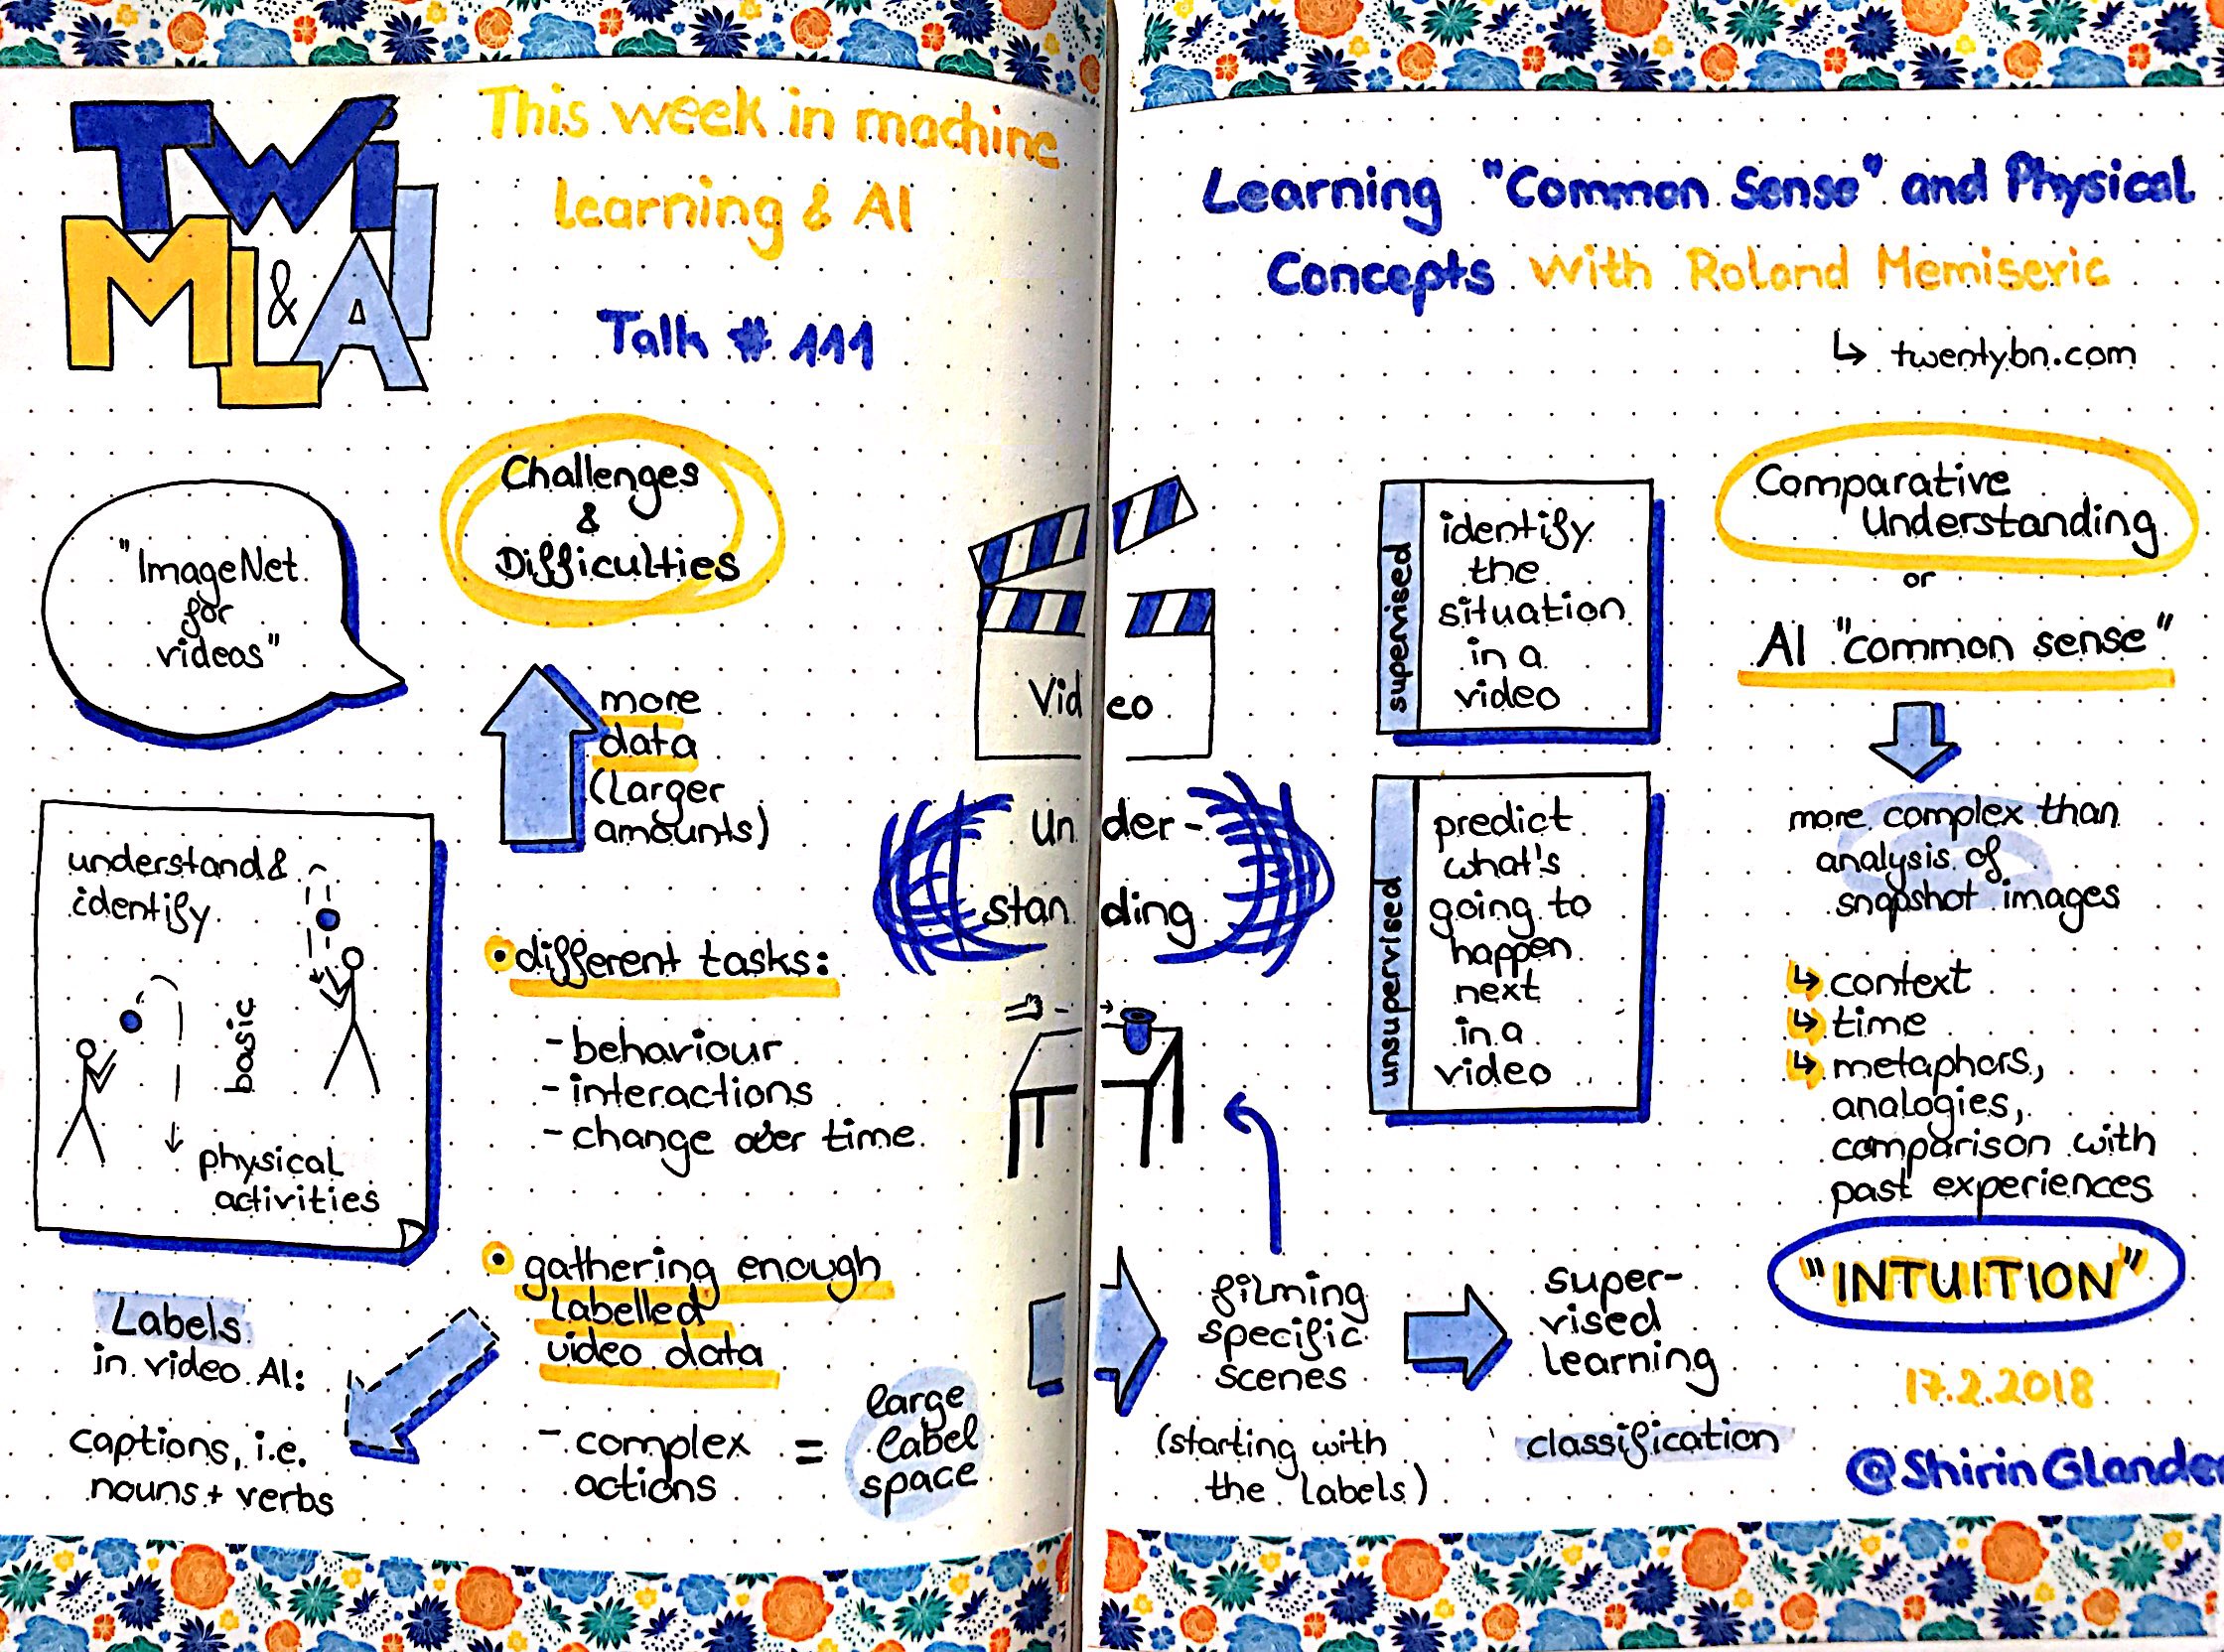 TWi
ML&AI
This week in machine
Learning & AI
Talk # 111
Learning "Common Sense" and Physical
Concepts with Roland Memiseric
↳ twentybn.com
"ImageNet
for
videos"
Challenges
&
Difficulties
more
data
(Larger
amounts)
understand &
identify
basic
physical
activities
• different tasks:
- behaviour
- interactions
- change over time
• gathering enough
labelled
video data
- complex
actions
= large
label
space
Labels
in video AI:
captions, i.e.
nouns + verbs
Video
under-
standing
supervised
identify
the
situation
in a
video
unsupervised
predict
what's
going to
happen
next
in a
video
filming
specific
scenes
(starting with
the labels)
super-
vised
learning
classification
Comparative
Understanding
or
AI "common sense"
more complex than
analysis of
snapshot images
↳ context
↳ time
↳ metaphors,
analogies,
comparison with
past experiences
"INTUITION"
17.2.2018
@ShirinGlander